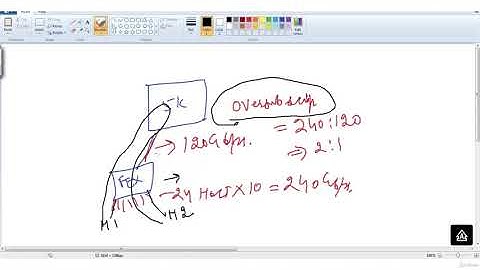 5K
Oversubscrip
= 240:120
→ 120Gbps.
⇒ 2:1
FEX
→
- 24 Host X 10 = 240Gbps.
H1
H2